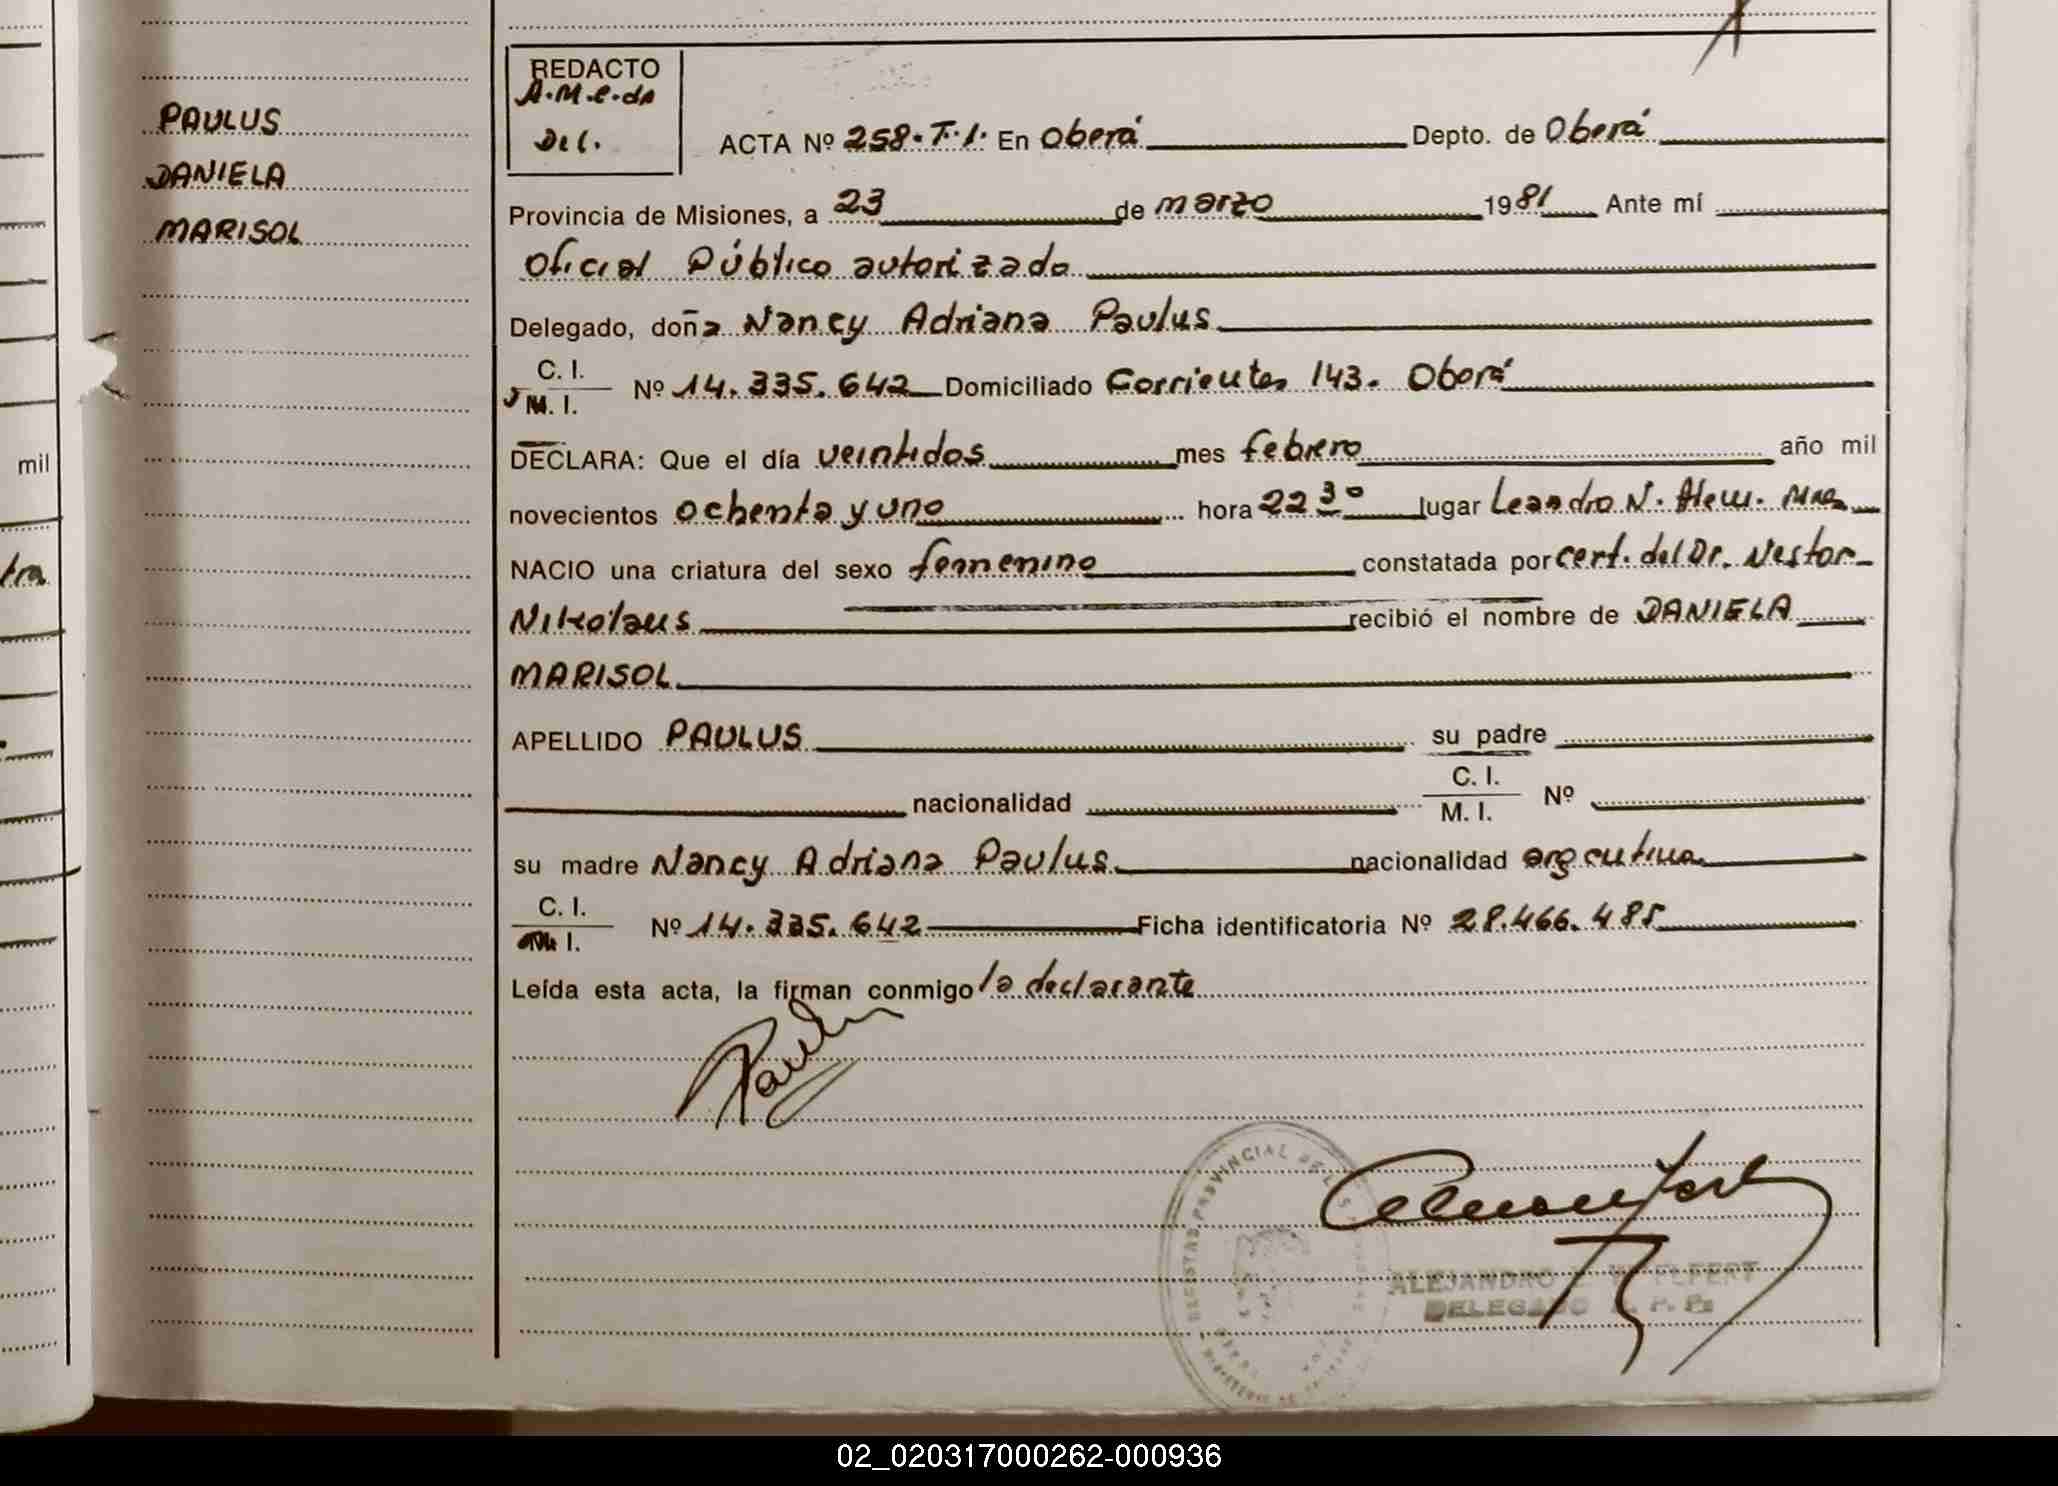 PAULUS
DANIELA
MARISOL
mil
tra
REDACTO
A.M.C.da
Del.
ACTA Nº 258.T.1. En Oberá Depto. de Oberá
Provincia de Misiones, a 23 de marzo 1981 Ante mí
Oficial Público autorizado
Delegado, doña Nancy Adriana Paulus
C. I.
M. I.
Nº 14.335.642 Domiciliado Corrientes 143. Oberá
DECLARA: Que el día veintidos mes febrero año mil
novecientos ochenta y uno hora 22 30 lugar Leandro N. Alem. Mnes
NACIO una criatura del sexo femenino constatada por cert. del Dr. Nestor
Nikolaus recibió el nombre de DANIELA
MARISOL
APELLIDO PAULUS su padre
nacionalidad C. I. M. I. Nº
su madre Nancy Adriana Paulus nacionalidad argentina
C. I.
I.
Nº 14.335.642 Ficha identificatoria Nº 28.466.485
Leída esta acta, la firman conmigo la declarante
Paulus
PROVINCIAL DE
ALEJANDRO
DELEGADO
02_020317000262-000936